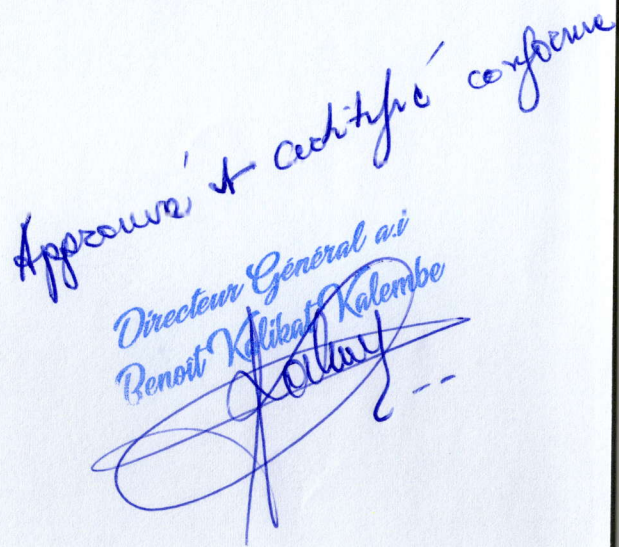 Approuvé et certifié conforme
Directeur Général a.i
Benoît Kalikat Kalembe